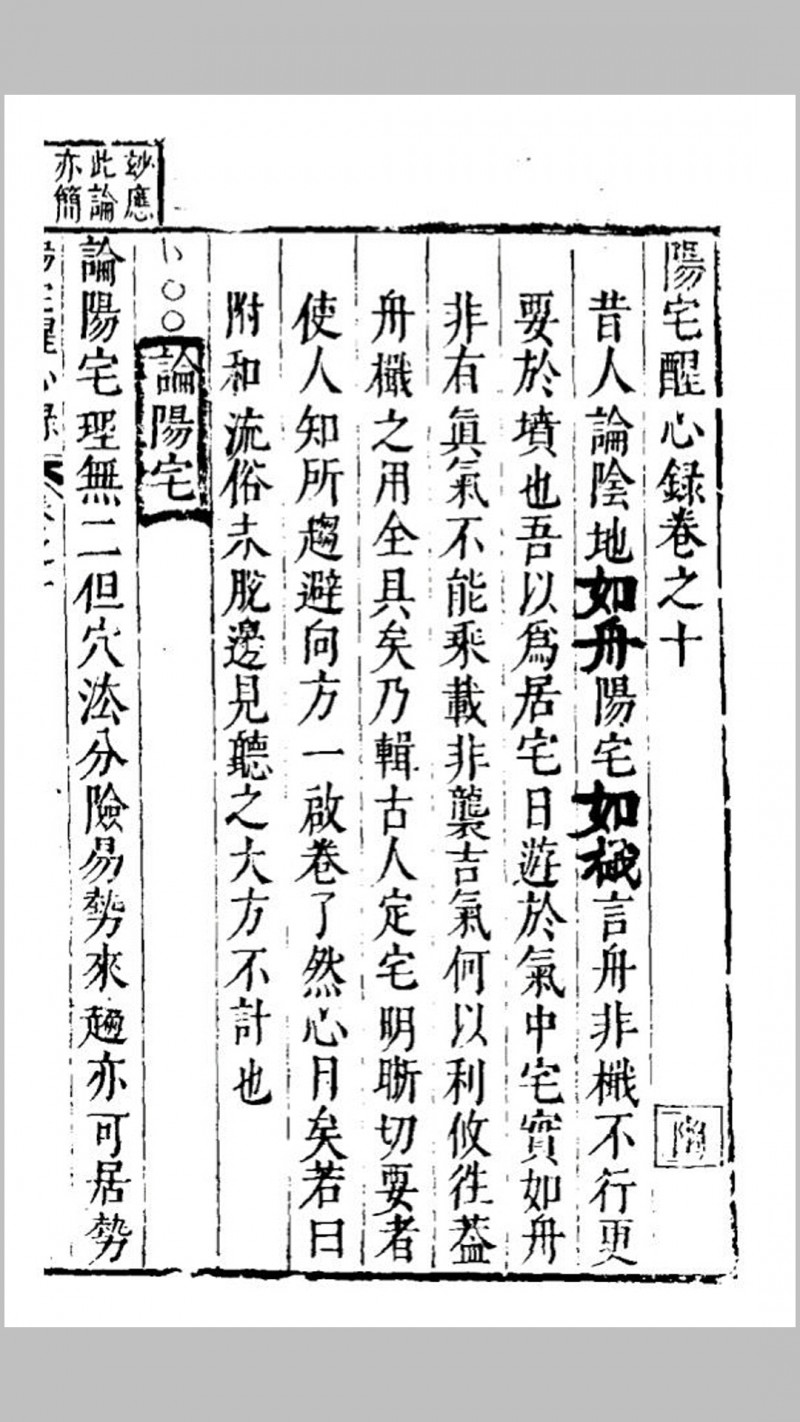 陽宅醒心録卷之十
昔人論陰地如舟陽宅如檝言舟非檝不行更
要於墳也吾以爲居宅日遊於氣中宅實如舟
非有眞氣不能乘載非襲吉氣何以利攸徃葢
舟檝之用全具矣乃輯古人定宅明晰切要者
使人知所趨避向方一啟卷了然心目矣若曰
附和流俗未脫邊見聽之大方不計也
論陽宅
玅應
此論
亦簡
論陽宅理無二但穴法分險易勢來趨亦可居勢